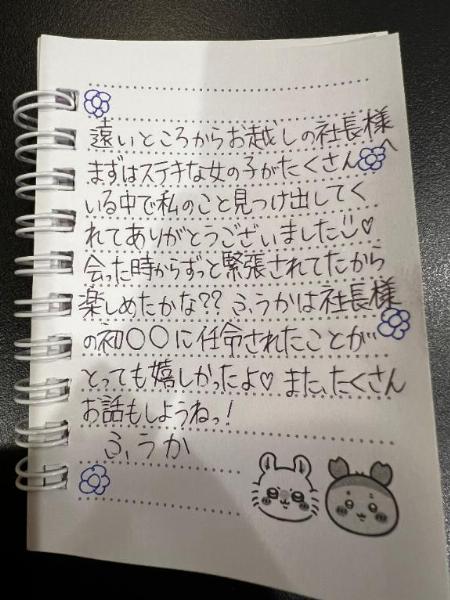 遠いところからお越しの社長様へ
まずはステキな女の子がたくさん
いる中で私のこと見つけ出してく
れてありがとうございました♡
会った時からずっと緊張されてたから
楽しめたかな?? ふうかは社長様
の初〇〇に任命されたことが
とっても嬉しかったよ♡ また、たくさん
お話もしようねっ!
ふうか